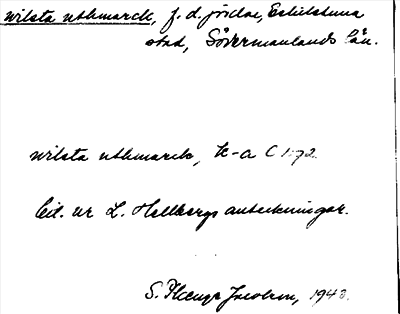 wilsta uthmarck, f. d. jordar, Eskilstuna
stad, Södermanlands län.
wilsta uthmarck, K-a C 1:72.
Cit. ur L. Hellbergs anteckningar.
S. Jacobson, 1943.